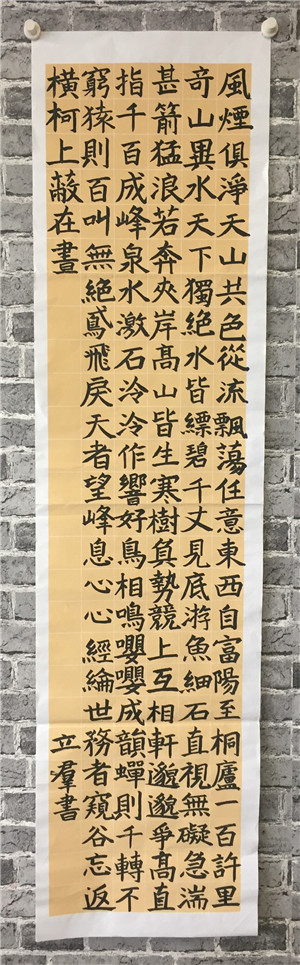 風煙俱淨天山共色從流飄蕩任意東西自富陽至桐廬一百許里
奇山異水天下獨絕水皆縹碧千丈見底游魚細石直視無礙急湍
甚箭猛浪若奔夾岸髙山皆生寒樹負勢競上互相軒邈邈爭髙直
指千百成峰泉水激石泠泠作響好鳥相鳴嚶嚶成韻蟬則千轉不
窮猿則百叫無絕鳶飛戾天者望峰息心心經綸世務者窺谷忘返
橫柯上蔽在晝
立羣書